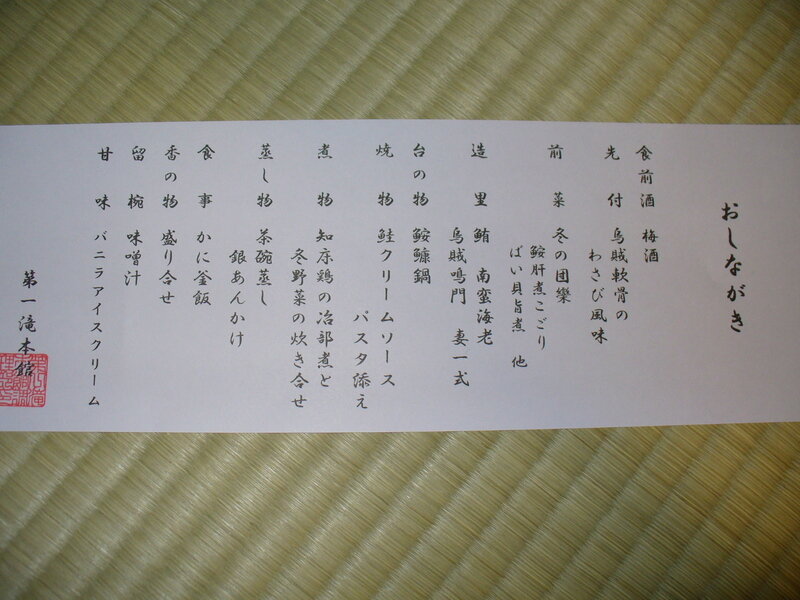 おしながき
食前酒 梅酒
先付 烏賊軟骨の
わさび風味
前菜 冬の団欒
鮟肝煮こごり
ばい貝旨煮 他
造里 鮪 南蛮海老
烏賊鳴門 妻一式
台の物 鮟鱇鍋
焼物 鮭クリームソース
パスタ添え
煮物 知床鶏の冶部煮と
冬野菜の炊き合せ
蒸し物 茶碗蒸し
銀あんかけ
食事 かに釜飯
香の物 盛り合せ
留椀 味噌汁
甘味 バニラアイスクリーム
第一滝本館